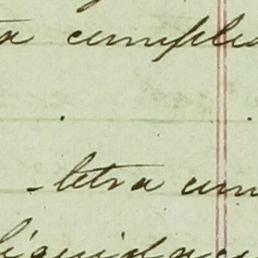 a cumplid
letra cum
liquidacio